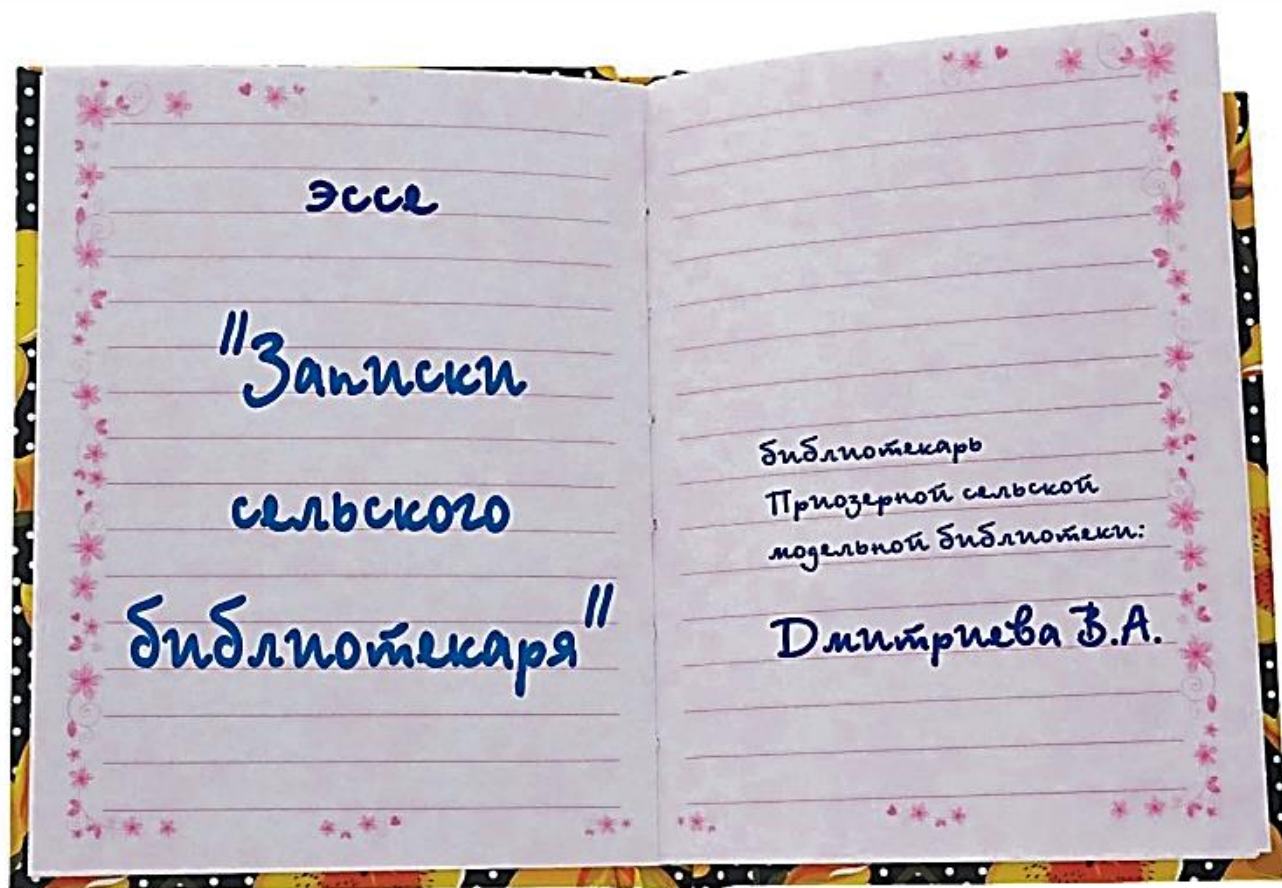 эссе
"Записки
сельского
библиотекаря"
библиотекарь
Приозерной сельской
модельной библиотеки:
Дмитриева В.А.